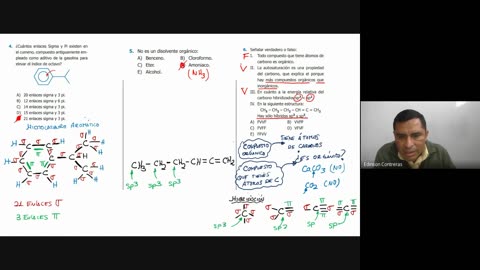 4. ¿Cuántos enlaces Sigma y Pi existen en
el cumeno, compuesto antiguamente em-
pleado como aditivo de la gasolina para
elevar el índice de octano?
A) 20 enlaces sigma y 3 pi.
21 enlaces sigma y 3 pi.
HIDROCARBURO AROMÁTICO
H
C
σ
π
21 ENLACES σ
3 ENLACES π
5. No es un disolvente orgánico:
A) Benceno.
B) Cloroformo.
C) Éter.
Amoniaco.
E) Alcohol.
(NH3)
CH3-CH2-CH2-CH=C=CH2
sp3
sp3
sp3
6. Señalar verdadero o falso:
F I. Todo compuesto que tiene átomos de
carbono es orgánico.
V II. La autosaturación es una propiedad
del carbono, que explica el porqué hay
más compuestos orgánicos que
inorgánicos.
V
En cuánto a la energía relativa del
carbono hibridizado
En la siguiente estructura:
CH3-CH2-CH2-CH=C=CH2
Hay sólo híbridos sp3 y sp2.
A) FVVF
B) VVFF
C) VFVF
D) FFVF
COMPUESTO
ORGÁNICO
TIENE ÁTOMOS
DE CARBONO
COMPUESTO
QUE TIENE
ÁTOMOS DE C
¿ES ORGÁNICO?
CaCO3 (NO)
CO2 (NO)
HIBRIDACIÓN
sp3
sp2
sp
sp
Edinson Contreras